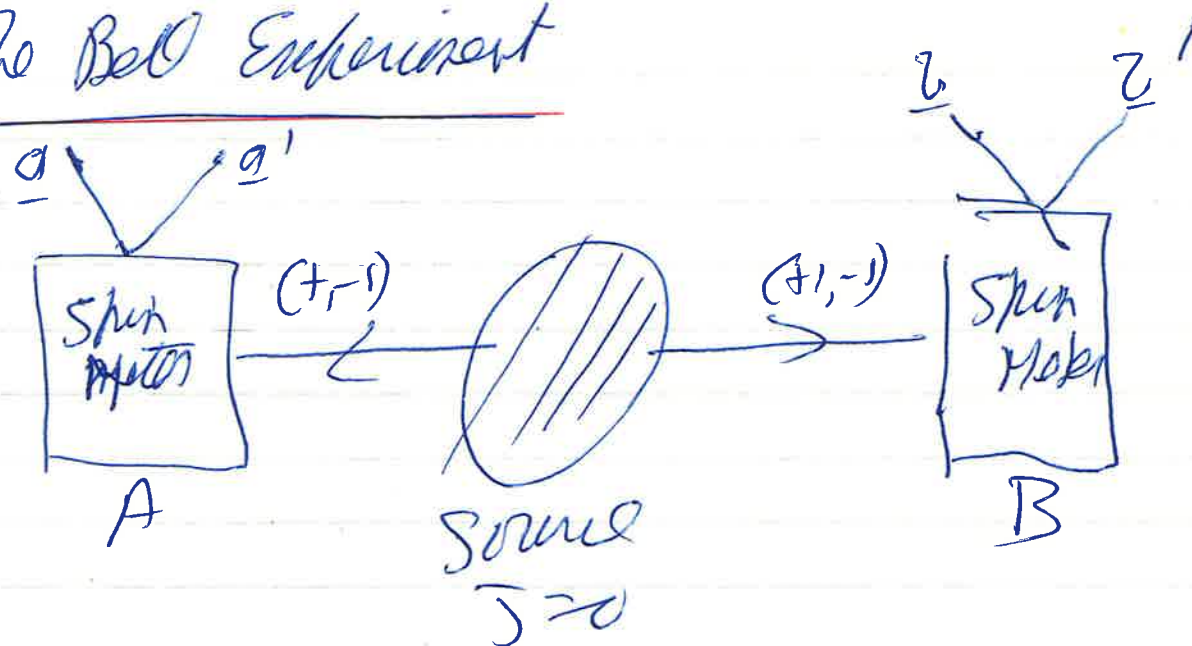 The Bell Experiment
a a' b b'
(+,-1) (+1,-1)
Spin Meter Spin Meter
A B
Source
J=0